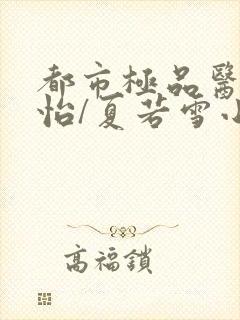 都市極品醫
怡/夏若雪小
高福鎖